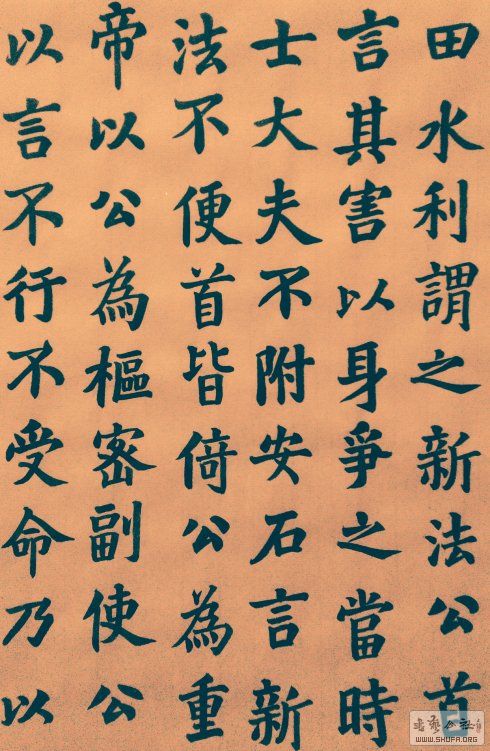 田水利謂之新法公首
言其害以身爭之當時
士大夫不附安石言新
法不便首皆倚公為重
帝以公為樞密副使公
以言不行不受命乃以
WWW.SHUFA.ORG